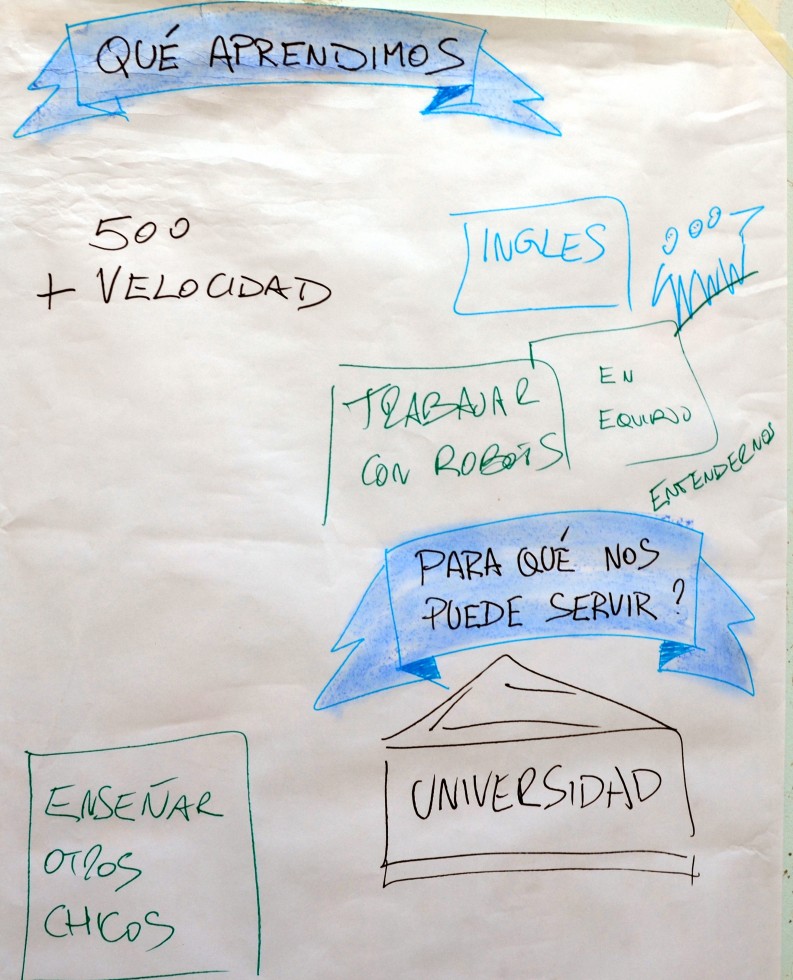 QUÉ APRENDIMOS
500
+ VELOCIDAD
INGLES
TRABAJAR
CON ROBOTS
EN
EQUIPO
ENTENDERNOS
PARA QUÉ NOS
PUEDE SERVIR?
UNIVERSIDAD
ENSEÑAR
OTROS
CHICOS